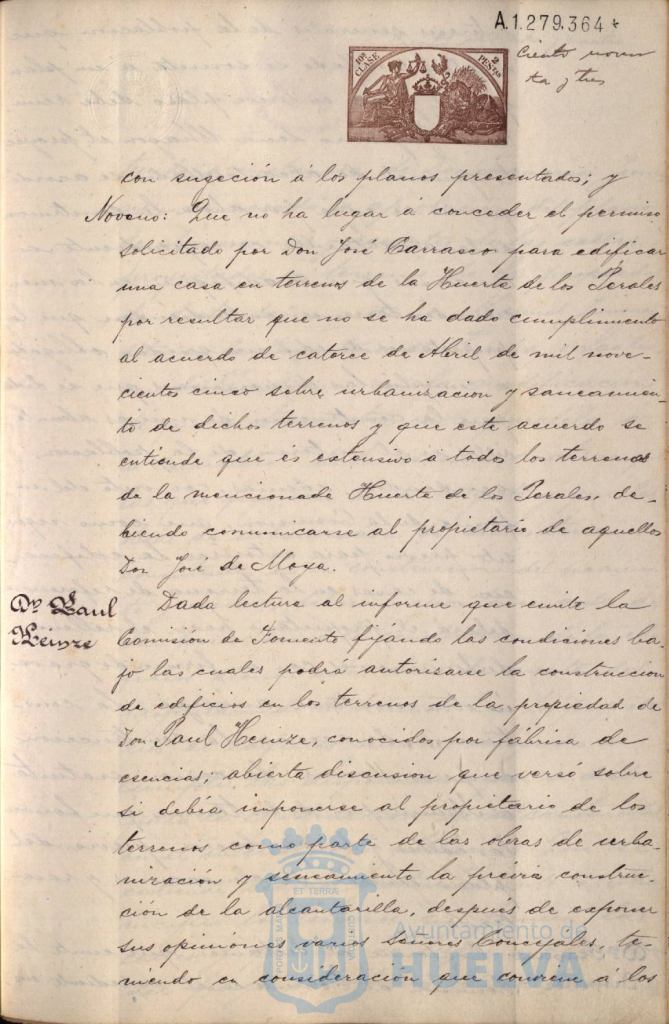 A.1.279.364
10ª CLASE
2 PESETAS
Ciento noven
ta y tres
con sugeción á los planos presentados; y
Noveno: Que no ha lugar á conceder el permiso
solicitado por Don José Carrasco para edificar
una casa en terrenos de la Huerta de los Perales
por resultar que no se ha dado cumplimiento
al acuerdo de catorce de Abril de mil nove-
cientos cinco sobre urbanizacion y saneamien-
to de dichos terrenos y que este acuerdo se
entiende que es extensivo á todos los terrenos
de la mencionada Huerta de los Perales, de-
biendo comunicarse al propietario de aquellos
Don José de Moya.
Dn. Paul
Heinze
Dada lectura al informe que emite la
Comisión de Fomento fijando las condiciones ba-
jo las cuales podrá autorizarse la construccion
de edificios en los terrenos de la propiedad de
Don Paul Heinze, conocidos por fábrica de
esencias; abierta discusion que versó sobre
si debía imponerse al propietario de los
terrenos como parte de las obras de urba-
nización y saneamiento la prévia construc-
ción de la alcantarilla, después de exponer
sus opiniones varios Señores Concejales, te-
niendo en consideración que conviene á los
Ayuntamiento de
HUELVA